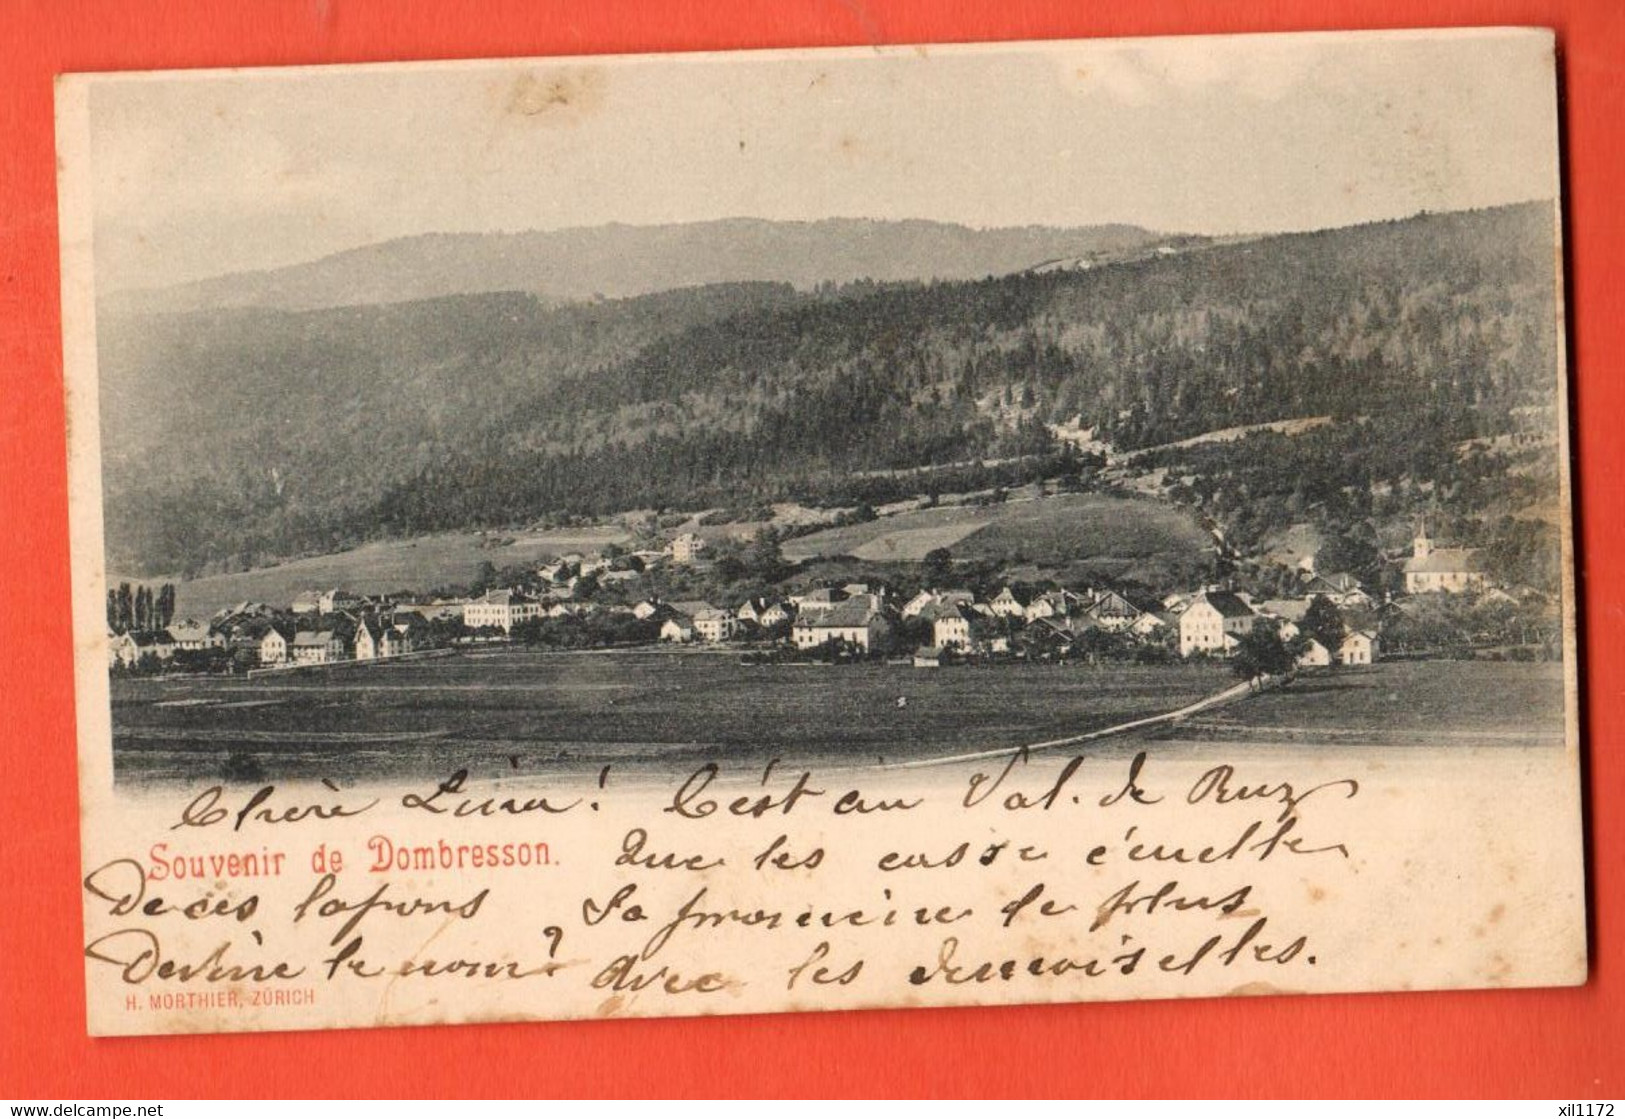 Chère Lina! C'est au Val. de Ruz
Souvenir de Dombresson.
Que les casse
De ces lapons
Sa promène de plus
Devine le nom?
Avec les demoiselles.
H. MORTHIER, ZÜRICH
www.delcampe.net
xil1172